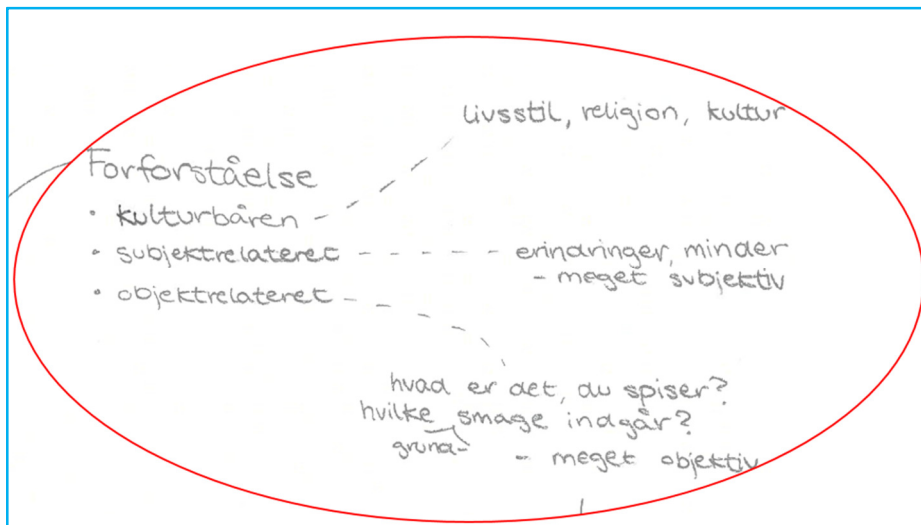 livsstil, religion, kultur
Forforståelse
• kulturbåren
• subjektrelateret - - - - - - erindringer, minder
- meget subjektiv
• objektrelateret
hvad er det, du spiser?
hvilke smage indgår?
grund-
- meget objektiv